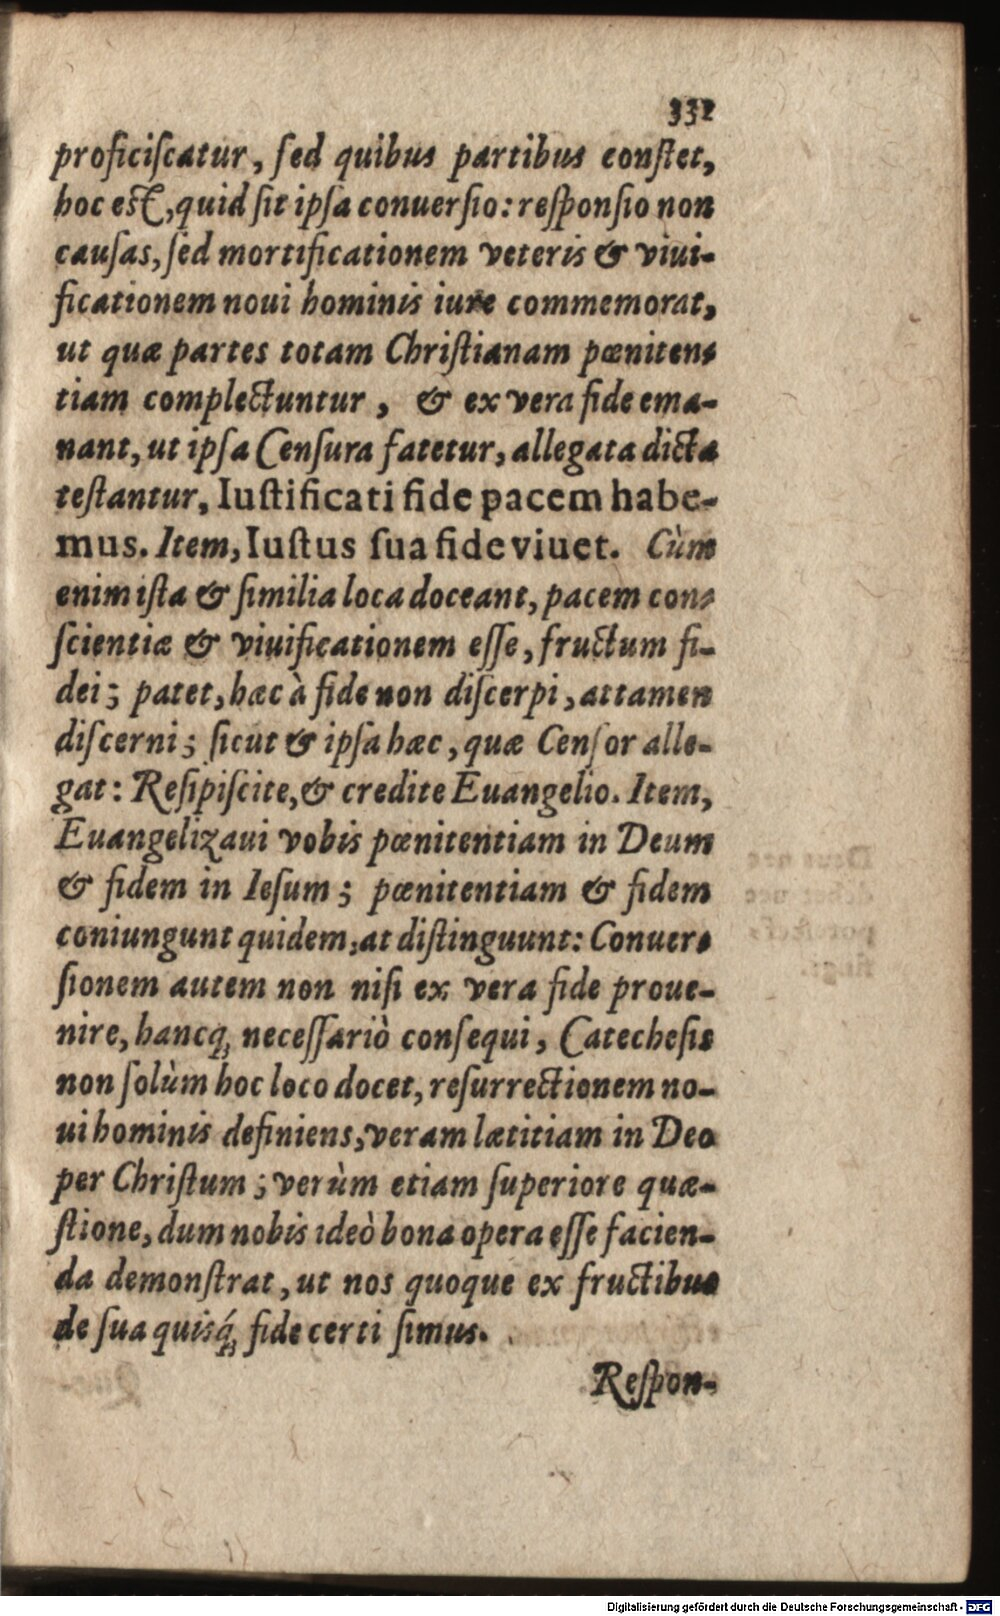 331
proficiſcatur, ſed quibus partibus conſtet,
hoc eſt, quid ſit ipſa conuerſio: reſponſio non
cauſas, ſed mortificationem veteris & viui-
ficationem noui hominis iure commemorat,
ut quæ partes totam Chriſtianam pœniten-
tiam complectuntur, & ex vera fide ema-
nant, ut ipſa Cenſura fatetur, allegata dicta
teſtantur, Iuſtificati fide pacem habe-
mus. Item, Iuſtus ſua fide viuet. Cùm
enim iſta & ſimilia loca doceant, pacem con-
ſcientiæ & viuificationem eſſe, fructum fi-
dei; patet, hæc à fide non diſcerpi, attamen
diſcerni; ſicut & ipſa hæc, quæ Cenſor alle-
gat: Reſipiſcite, & credite Euangelio. Item,
Euangelizaui vobis pœnitentiam in Deum
& fidem in Ieſum; pœnitentiam & fidem
coniungunt quidem, at diſtinguunt: Conuer-
ſionem autem non niſi ex vera fide proue-
nire, hancq́; neceſſariò conſequi, Catecheſis
non ſolùm hoc loco docet, reſurrectionem no-
ui hominis definiens, veram lætitiam in Deo
per Chriſtum; verùm etiam ſuperiore quæ-
ſtione, dum nobis ideò bona opera eſſe facien-
da demonſtrat, ut nos quoque ex fructibus
de ſua quiſq́; fide certi ſimus.
Reſpon-
Digitalisierung gefördert durch die Deutsche Forschungsgemeinschaft - DFG